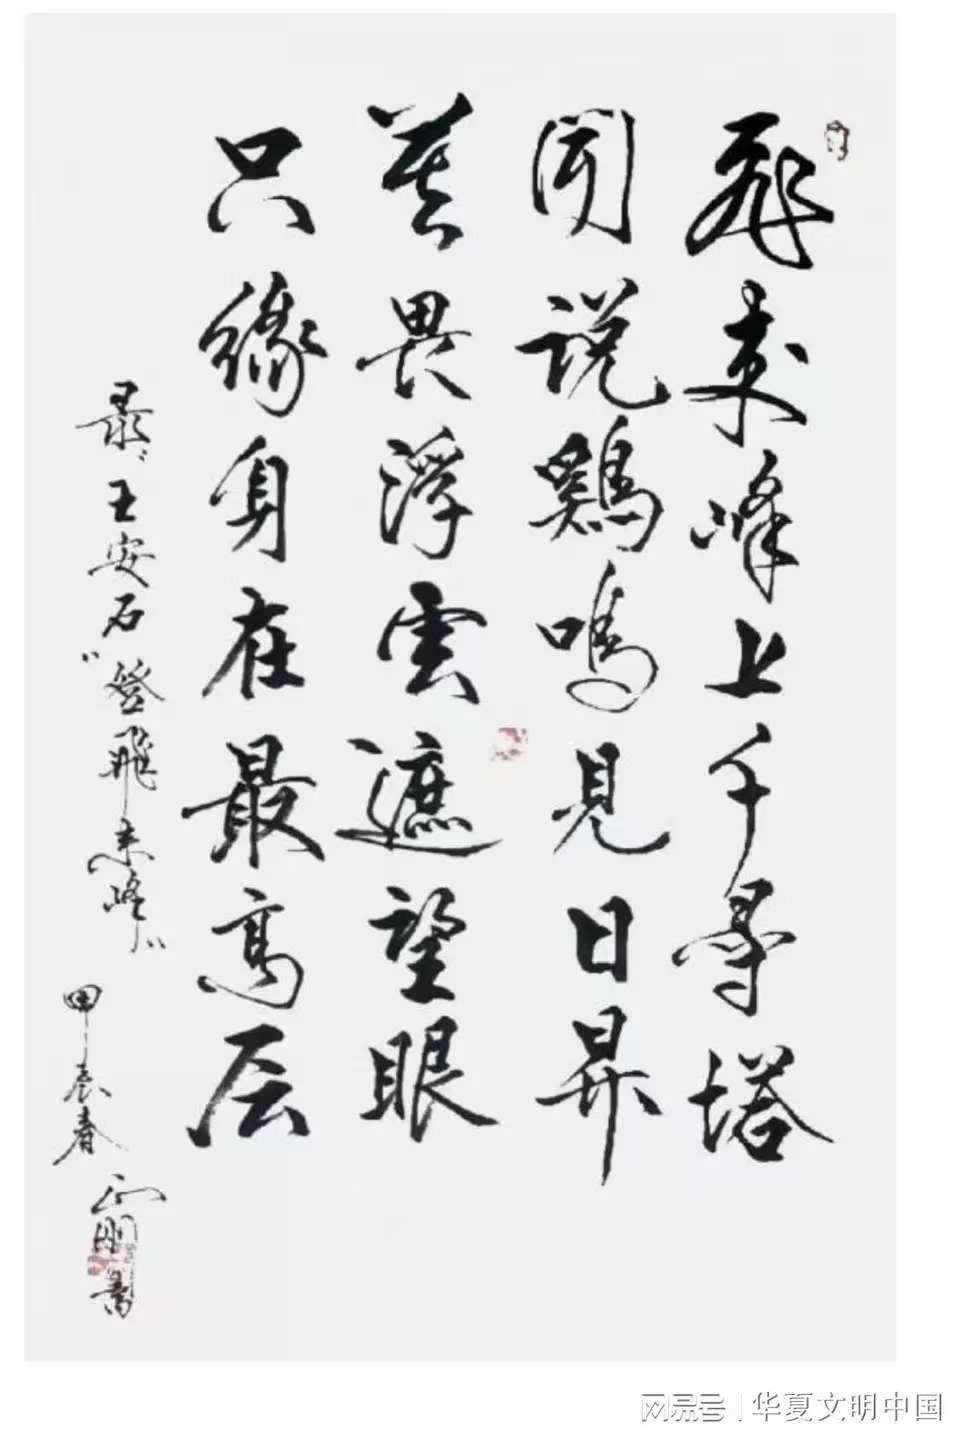 飛来峰上千尋塔
聞說鷄鳴見日昇
莫畏浮雲遮望眼
只緣身在最高层
录：王安石"登飛来峰"
甲辰春
正刚書
网易号 | 华夏文明中国